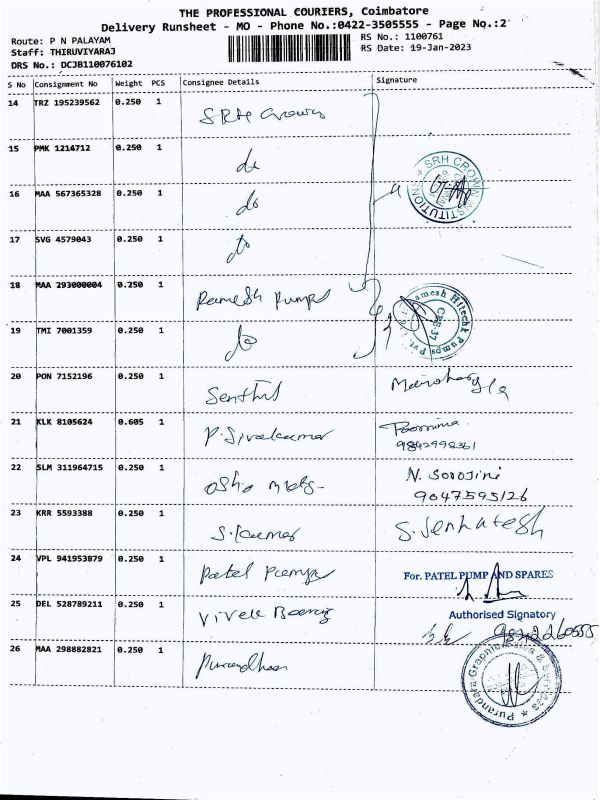 THE PROFESSIONAL COURIERS, Coimbatore
Delivery Runsheet - MO - Phone No.:0422-3505555 - Page No.:2
Route: P N PALAYAM
RS No.: 1100761
Staff: THIRUVIYARAJ
RS Date: 19-Jan-2023
DRS No.: DCJB110076102
S No Consignment No Weight PCS Consignee Details Signature
14 TRZ 195239562 0.250 1 SRH Crown
15 PMK 1214712 0.250 1 do
SRH CROWN INSTITUTIONS
16 MAA 567365328 0.250 1 do
17 SVG 4579043 0.250 1 do
18 MAA 293000004 0.250 1 Ramesh Pumps
Ramesh Hitech Pumps Pvt.
CBE-37
19 TMI 7001359 0.250 1 do
20 PON 7152196 0.250 1 Senthil
21 KLK 8105624 0.605 1 P. Sivakumar Poornima
22 SLM 311964715 0.250 1 N. Sorojini
9047595126
23 KRR 5593388 0.250 1 S. Kumar S. Venkatesh
24 VPL 941953879 0.250 1 Patel Pumps For. PATEL PUMP AND SPARES
25 DEL 528789211 0.250 1 Vivek Authorised Signatory
26 MAA 298882821 0.250 1 Purandhar